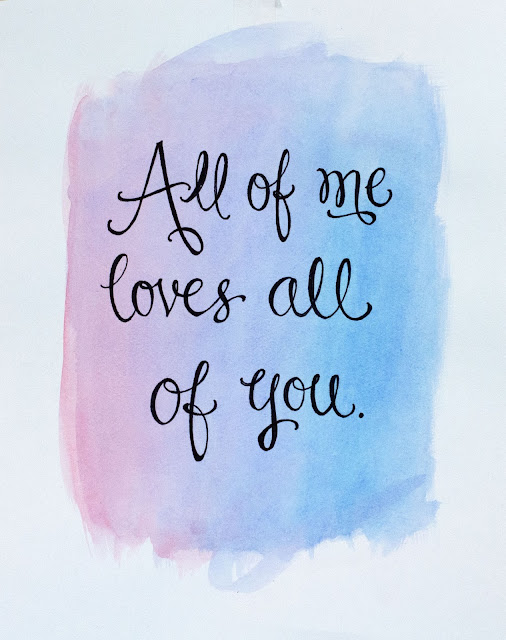 All of me
loves all
of you.